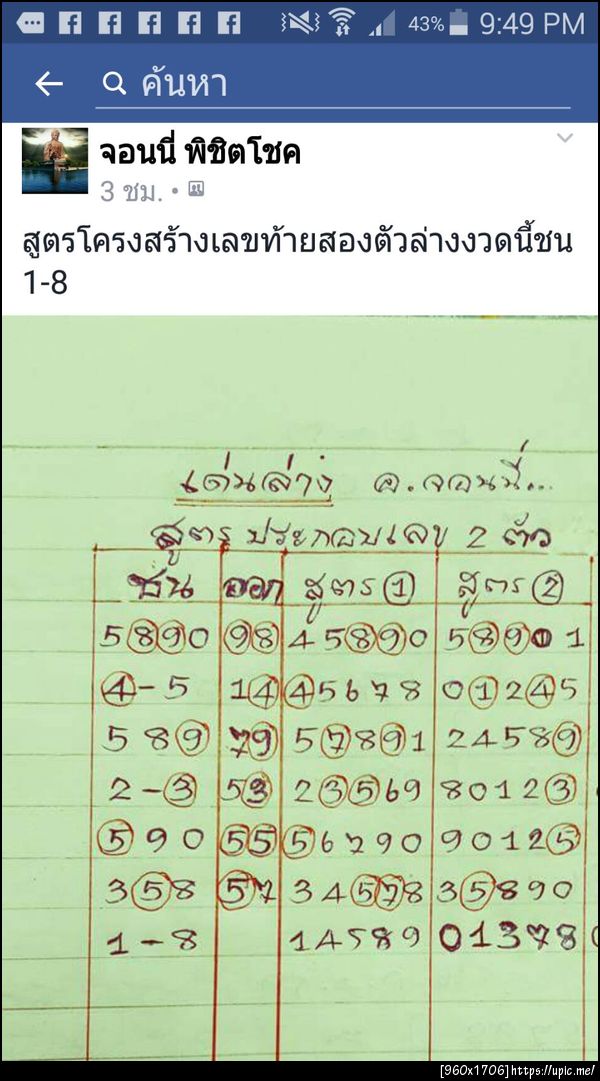 43% 9:49 PM
ค้นหา
จอนนี่ พิชิตโชค
3 ชม.
สูตรโครงสร้างเลขท้ายสองตัวล่างงวดนี้ชน
1-8
เด่นล่าง อ.จอนนี่...
สูตร ประกอบเลข 2 ตัว
ชน ออก สูตร 1 สูตร 2
5890 98 45890 58901
4-5 14 45678 01245
589 79 57891 24589
2-3 53 23569 80123
590 55 56790 90125
358 57 34578 35890
1-8 14589 01378
[960x1706]https://upic.me/